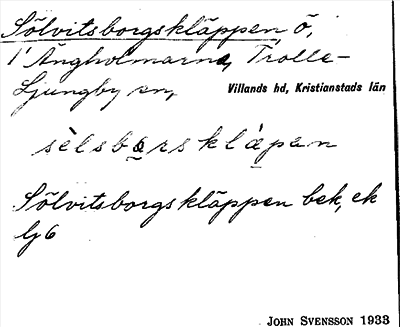 Sölvitsborgskläppen, ö,
i Ängholmarna, Trolle-
Ljungby sn, Villands hd, Kristianstads län
sèlsbo̱rsklä̀pen
Sölvitsborgskläppen bek, ek
lj 6
JOHN SVENSSON 1933